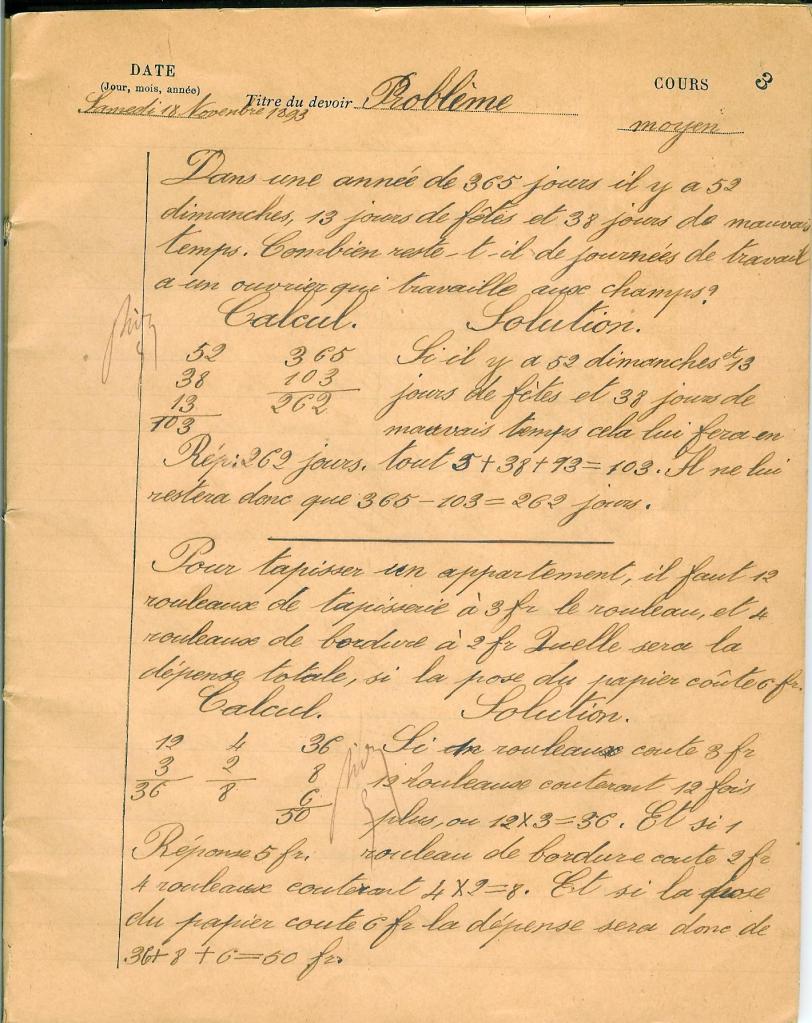 DATE
(Jour, mois, année)
Samedi 18 Novembre 1893
Titre du devoir Problème
COURS
moyen
3
Dans une année de 365 jours il y a 52
dimanches, 13 jours de fêtes et 38 jours de mauvais
temps. Combien reste-t-il de journées de travail
a un ouvrier qui travaille aux champs?
Calcul. Solution.
52 365 Si il y a 52 dimanches et 13
38 103 jours de fêtes et 38 jours de
13 262
103 mauvais temps cela lui fera en
Rép: 262 jours. tout 5+38+13=103. Il ne lui
restera donc que 365-103=262 jours.
Pour tapisser un appartement, il faut 12
rouleaux de tapisserie à 3 fr le rouleau, et 4
rouleaux de bordure à 2 fr Quelle sera la
dépense totale, si la pose du papier coûte 6 fr.
Calcul. Solution.
12 4 36 Si un rouleaux coute 3 fr
3 2 8 12 rouleaux couteront 12 fois
36 8 6
50 plus, ou 12×3=36. Et si 1
Réponse 5 fr. rouleau de bordure coute 2 fr
4 rouleaux couteront 4×2=8. Et si la pose
du papier coute 6 fr la dépense sera donc de
36+8+6=50 fr.